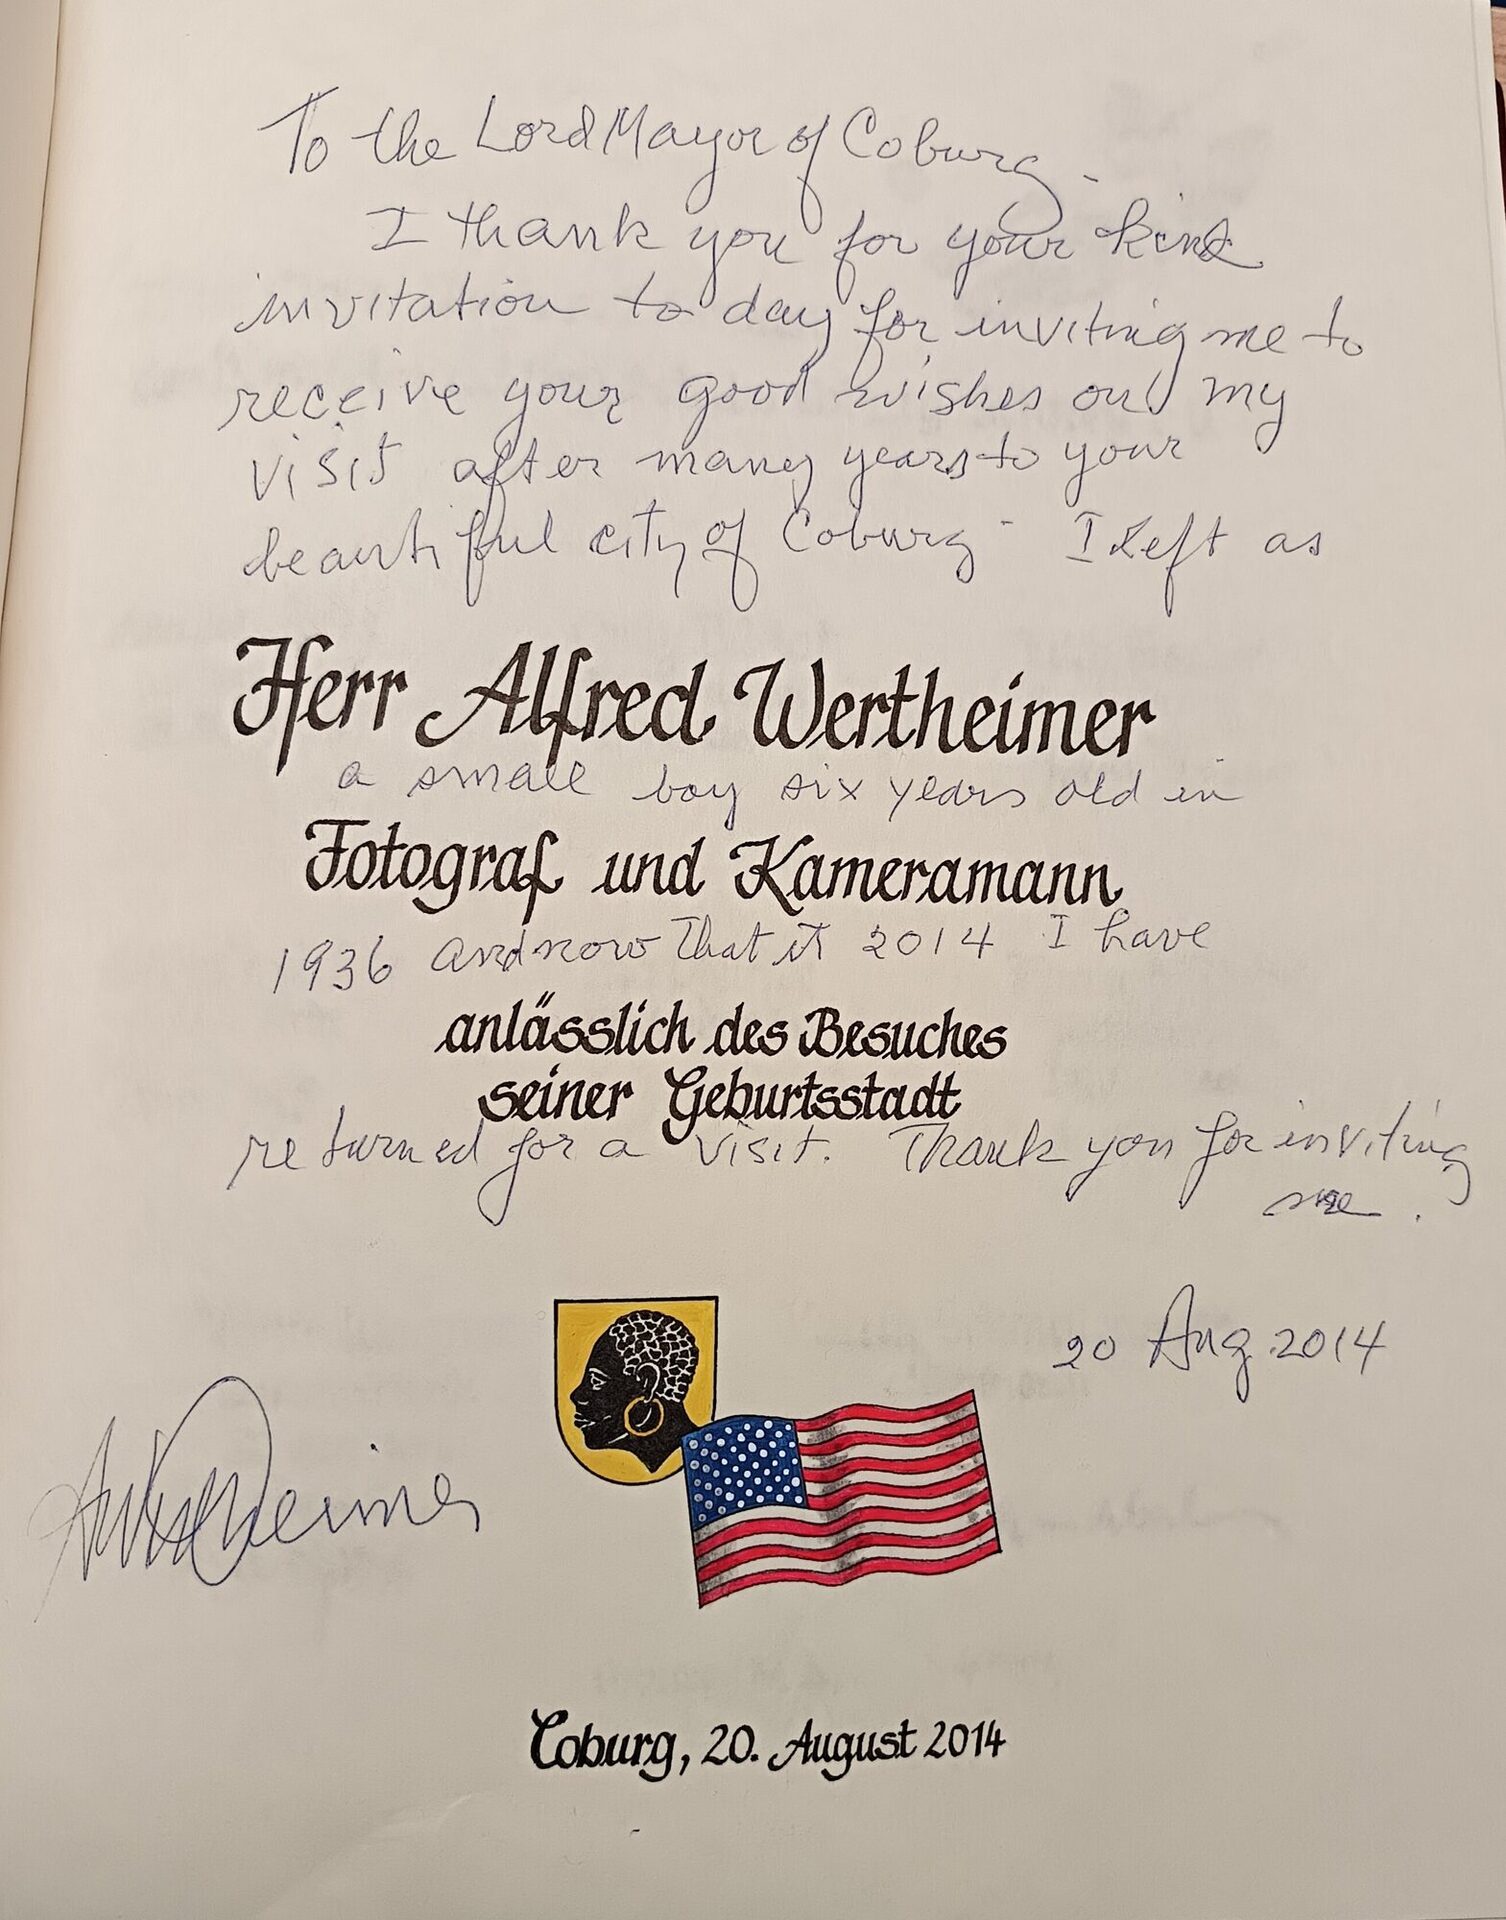 To the Lord Mayor of Coburg -
I thank you for your kind
invitation to day for inviting me to
receive your good wishes on my
visit after many years to your
beautiful city of Coburg - I left as
Herr Alfred Wertheimer
a small boy six years old in
Fotograf und Kameramann
1936 and now that it 2014 I have
anlässlich des Besuches
seiner Geburtsstadt
returned for a visit. Thank you for inviting
me.
20 Aug 2014
A Wertheimer
Coburg, 20. August 2014